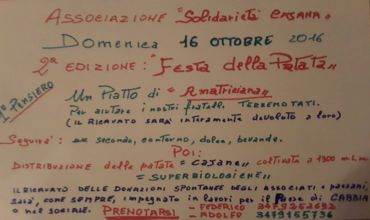 ASSOCIAZIONE "Solidarietà CASANA"
DOMENICA 16 OTTOBRE 2016
2ª EDIZIONE: "FESTA della PATATA"
1° PENSIERO
UN PIATTO DI "AMATRICIANA"
Per aiutare i nostri fratelli TERREMOTATI.
(IL RICAVATO SARÀ interamente devoluto a loro)
Seguirà: un secondo, contorno, dolce, bevande.
POI:
DISTRIBUZIONE delle patate "casane" coltivate a 1300 m.l.m.
= SUPERBIOLOGICHE =
IL RICAVATO DELLE DONAZIONI SPONTANEE degli ASSOCIATI e paesani,
sarà, come sempre, impegnato in lavori per il Paese di CABBIA
o nel sociale. PRENOTARSI - FEDERICO
- ADOLFO 3479165736